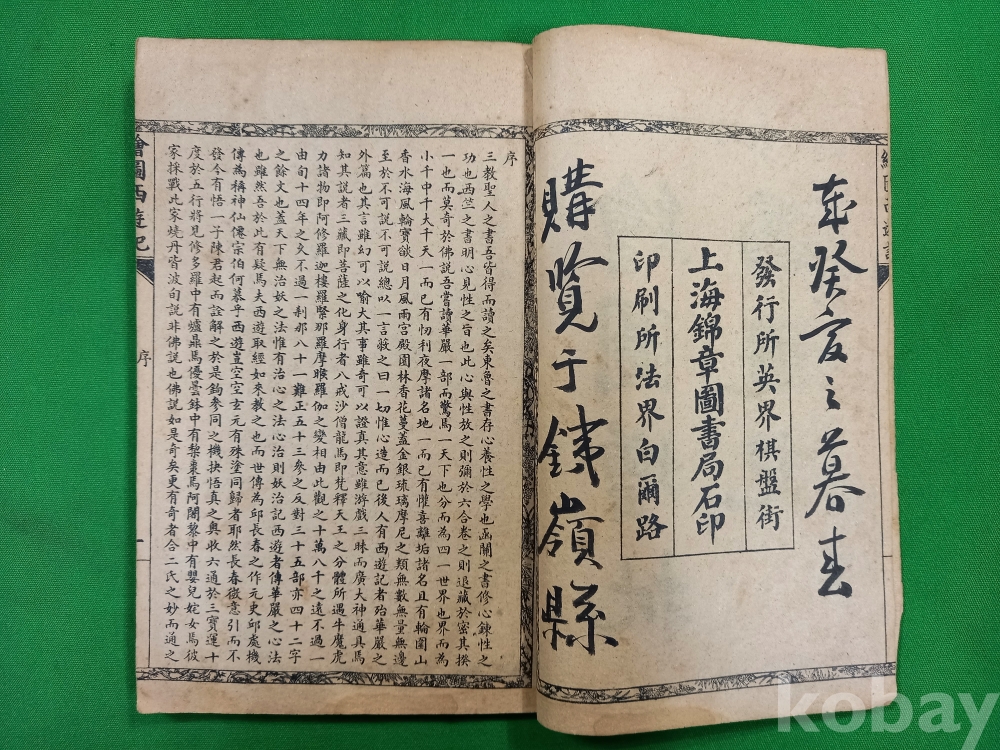 癸亥之暮春
發行所英界棋盤街
上海錦章圖書局石印
印刷所法界白爾路
購覽于鐵嶺縣
序
三教聖人之書吾皆得而讀之矣東魯之書存心養性之學也函關之書修心鍊性之
功也西竺之書明心見性之旨也此心與性放之則彌於六合卷之則退藏於密其揆
一也而莫奇於佛說吾嘗讀華嚴一部而驚焉一天下也分而為四一世界也界而為
小千中千大千天一而已有忉利夜摩諸名地一而已有懽喜離垢諸名且有輪圍山
香水海風輪寶燄日月風雨宮殿園林香花蔓蓋金銀琉璃摩尼之類無數無量無邊
至於不可說不可說總以一言蔽之曰一切惟心造而已後人有西遊記者殆華嚴之
外篇也其言雖幻可以喻大其事雖奇可以證真其意雖游戲三昧而廣大神通具焉
知其說者三藏即菩薩之化身行者八戒沙僧龍馬即梵釋天王之分體所遇牛魔虎
力諸物即阿修羅迦樓羅緊那羅摩睺羅伽之變相由此觀之十萬八千之遠不過一
由旬十四年之久不過一刹那八十一難正五十三參之反對三十五部亦四十二字
之餘文也蓋天下無治妖之法惟有治心之法心治則妖治記西遊者傳華嚴之心法
也雖然吾於此有疑焉夫西遊取經如來教之也而世傳為邱長春之作元史邱處機
傳為稱神仙僊宗伯何慕乎西遊豈空空玄元有殊塗同歸者耶然長春微意引而不
發今有悟一子陳君起而詮解之於是鈎參同之機抉悟真之奧收六通於三寶運十
度於五行將見修多羅中有爐鼎焉優曇鉢中有棃棗焉阿闍黎中有嬰兒姹女焉彼
家採戰此家燒丹皆波旬說非佛說也佛說如是奇矣更有奇者合二氏之妙而通之
繪圖西遊記
序
一
kobay